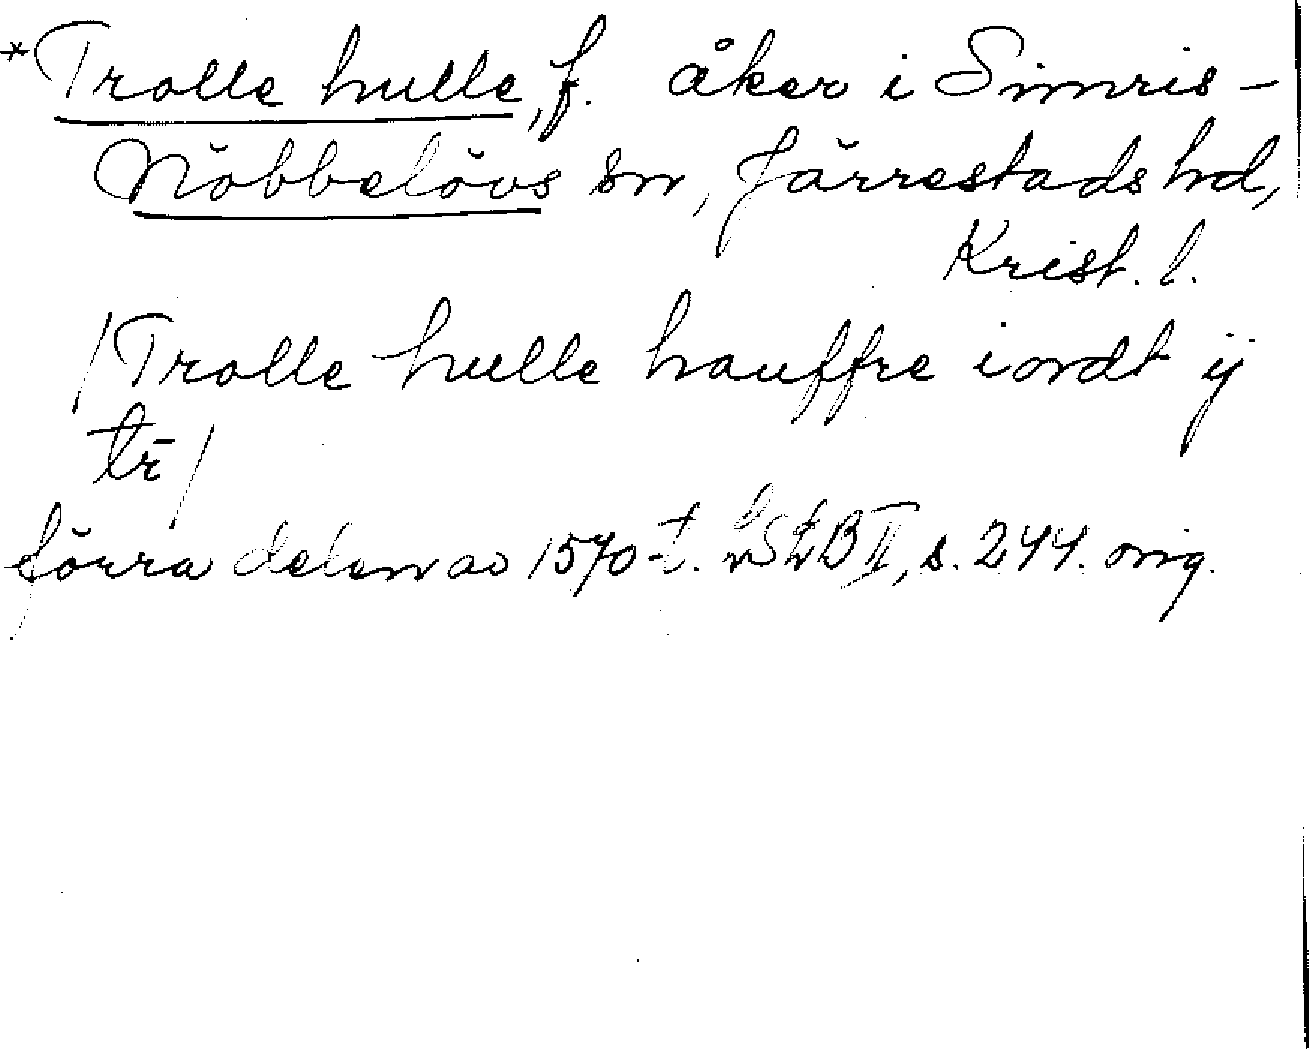 *Trolle hulle, f. åker i Simris-
Nöbbelövs sn, Järrestads hd,
Krist. l.
/Trolle hulle hauffre iordt ij
tr̄/
förra delen av 1570-t. LStB II, s. 244. orig.